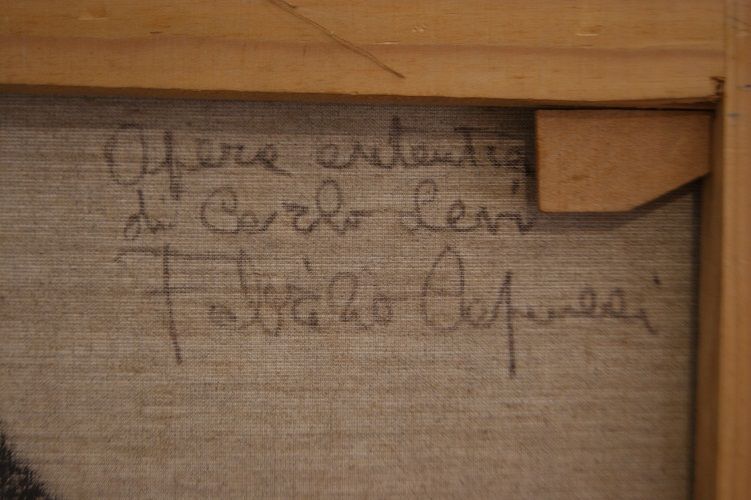 Opera autentica
di Carlo Levi
Fabrizio